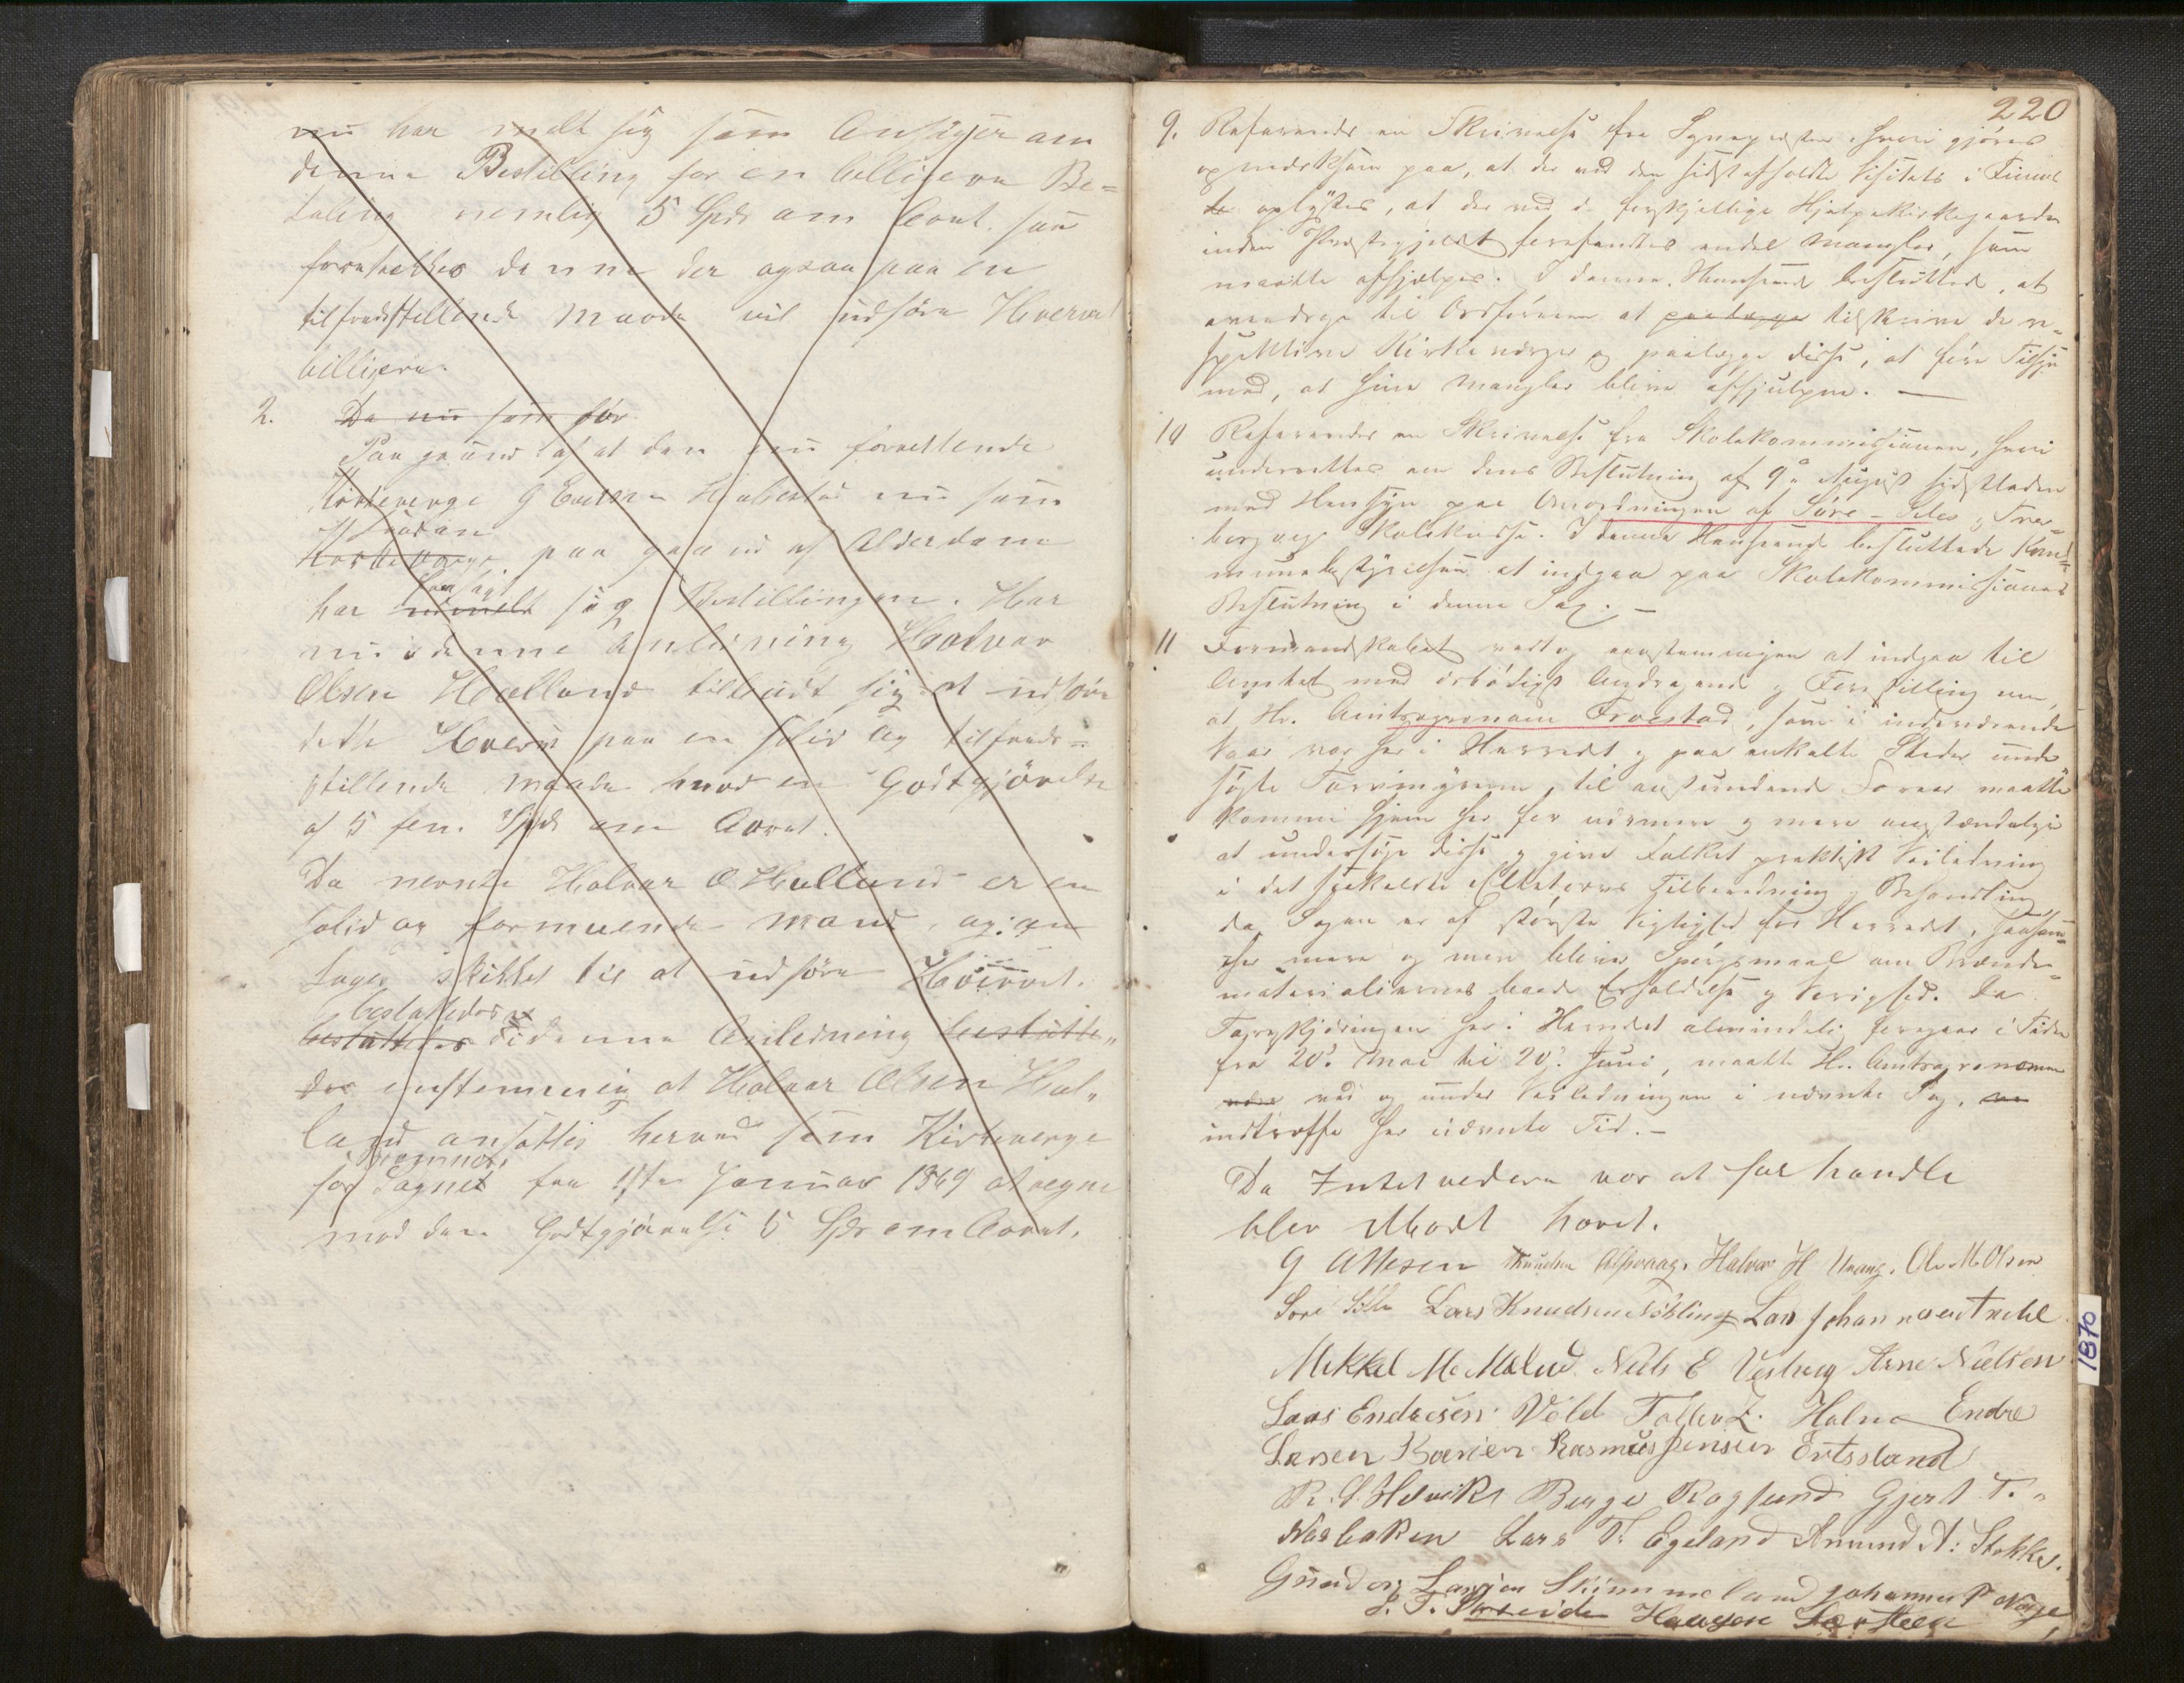 nu har meldt sig som Ansøger om
denne Bestilling for en billigere Be=
taling nemlig 5 Spd om Aaret. saa
foretrækkes denne der ogsaa paa en
tilfredsstillende Maade vil udføre Hvervet
billigere.
2. Da nu som før
Paa grund af at den nu forrettende
Kirkeverge G Eversen nu som
saadan
Kirkeverge, paa grund af Alderdom
har frasagt sig Bestillingen. Har
nu i denne Anledning Halvor
Olsen Hælland tilbudt sig at udføre
dette Hverv paa en solid og tilfreds=
stillende maade mod en Godtgjørelse
af 5 fem Spd om Aaret.
Da nevnte Halvor O Hælland er en
solid og formuende mand, og: en
skikket til at udføre Hvervet.
besluttedes
besluttedes i denne Anledning beslutte„
des enstemmig at Halvor Olsen Hæl„
land ansættes herved som Kirkeverge
for Sognet fra 1ste Januar 1869 at regne
mod den Godtgjørelse 5 Spd om Aaret.
220
9. Refereredes en Skrivelse fra Sognepresten hvori gjøres
opmerksom paa, at der ved den sidst afholdte Visitats i Finnaas
oplystes, at der ved de forskjellige Hjelpekirkegaarde
inden Prestegjeldet forefandtes endel Mangler, som
maatte afhjelpes. I denne Henseende besluttedes, at
overdrage til Ordføreren at paalægge tilskrive de re=
spektive Kirkeverger og paalægge disse, at føre Tilsyn
med, at sine Mangler blive afhjulpne. —
10 Refereredes en Skrivelse fra Skolekommissionen, hvori
underrettes om dens Beslutning af 9de August sidstleden
med Hensyn paa Anordningen af Søre-Siles og
Skolekredse. I denne Henseende besluttede Kom=
munebestyrelsen at indgaa paa Skolekommissionens
Beslutning i denne Sag. —
11 Formandskabet vedtog eenstemmigen at indgaa til
Amtet med ærbødigst Andragende og Forestilling om,
at Hr. Amtsagronom Frøestad, som i indeværende
Vaar var her i Herredet og paa enkelte Steder under
søgte Torvmyrerne, til anstundende Foraar maatte
komme hjem her for nærmere og mere omstændelige
at undersøge disse og give Folket praktisk Veiledning
i det saakaldte Æltetorvs Tilberedning og Behandling
da Sagen er af største Vigtighed for Herredet, saasom
her mere og mere bliver Spørgsmaal om Brænde=
materialiernes baade Erholdelse og Varighed. Da
Torvskjæringen her i Herredet almindelig foregaar i Tiden
fra 20de Mai til 20de Juni, maatte Hr. Amtsagronomen
ved og under Veiledningen i nævnte Sag,
indtræffe her nævnte Tid. —
Da Intet videre var at for handle
blev Mødet hævet.
G Attesen Halvor H Urang. Ole M Olsen
Lars Knudsen Lars Johannesen
Mikkel M. Mælud Niels E Vestvig Arne Nielsen
Lars Endresen Vold Tollev Z. Holme Endre
Larsen Rasmus Jensen Eriksland
R. S. Helvik Børge Rogsund Gjert T. „
Nesbaken Lars T. Egeland Amund A: Stokke.
Gunder Larsen Skimmeland Johannes P
L. T. Haagen
1870